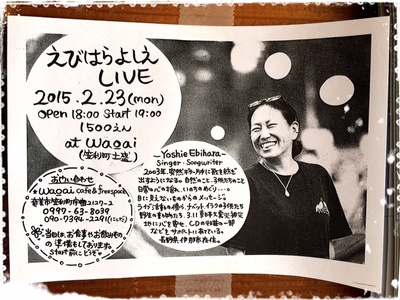 えびはらよしえ
LIVE
2015.2.23(mon)
open 18:00 start 19:00
1500えん
at wagai
—Yoshie Ebihara—
Singer・Songwriter
2003年、突然ギター片手に歌を紡ぎ
出すようになる。自然のこと、子供たちのこと
日常のバカ言い、いのちをめぐり・・・。
目に見えないものからのメッセージ。
ライブで言葉の傍ら、チベット、イラクの子供たち
野生の生き物たち、3.11東日本大震災被災
地にハグを寄せ、CDの収益の一部
などをサポートにあてている。
長野県伊那市在住。
お問い合わせ
wagai cafe & freespace
0997-63-8039
当日は、お食事やお飲みもの
の準備もしております。
start前にどうぞ